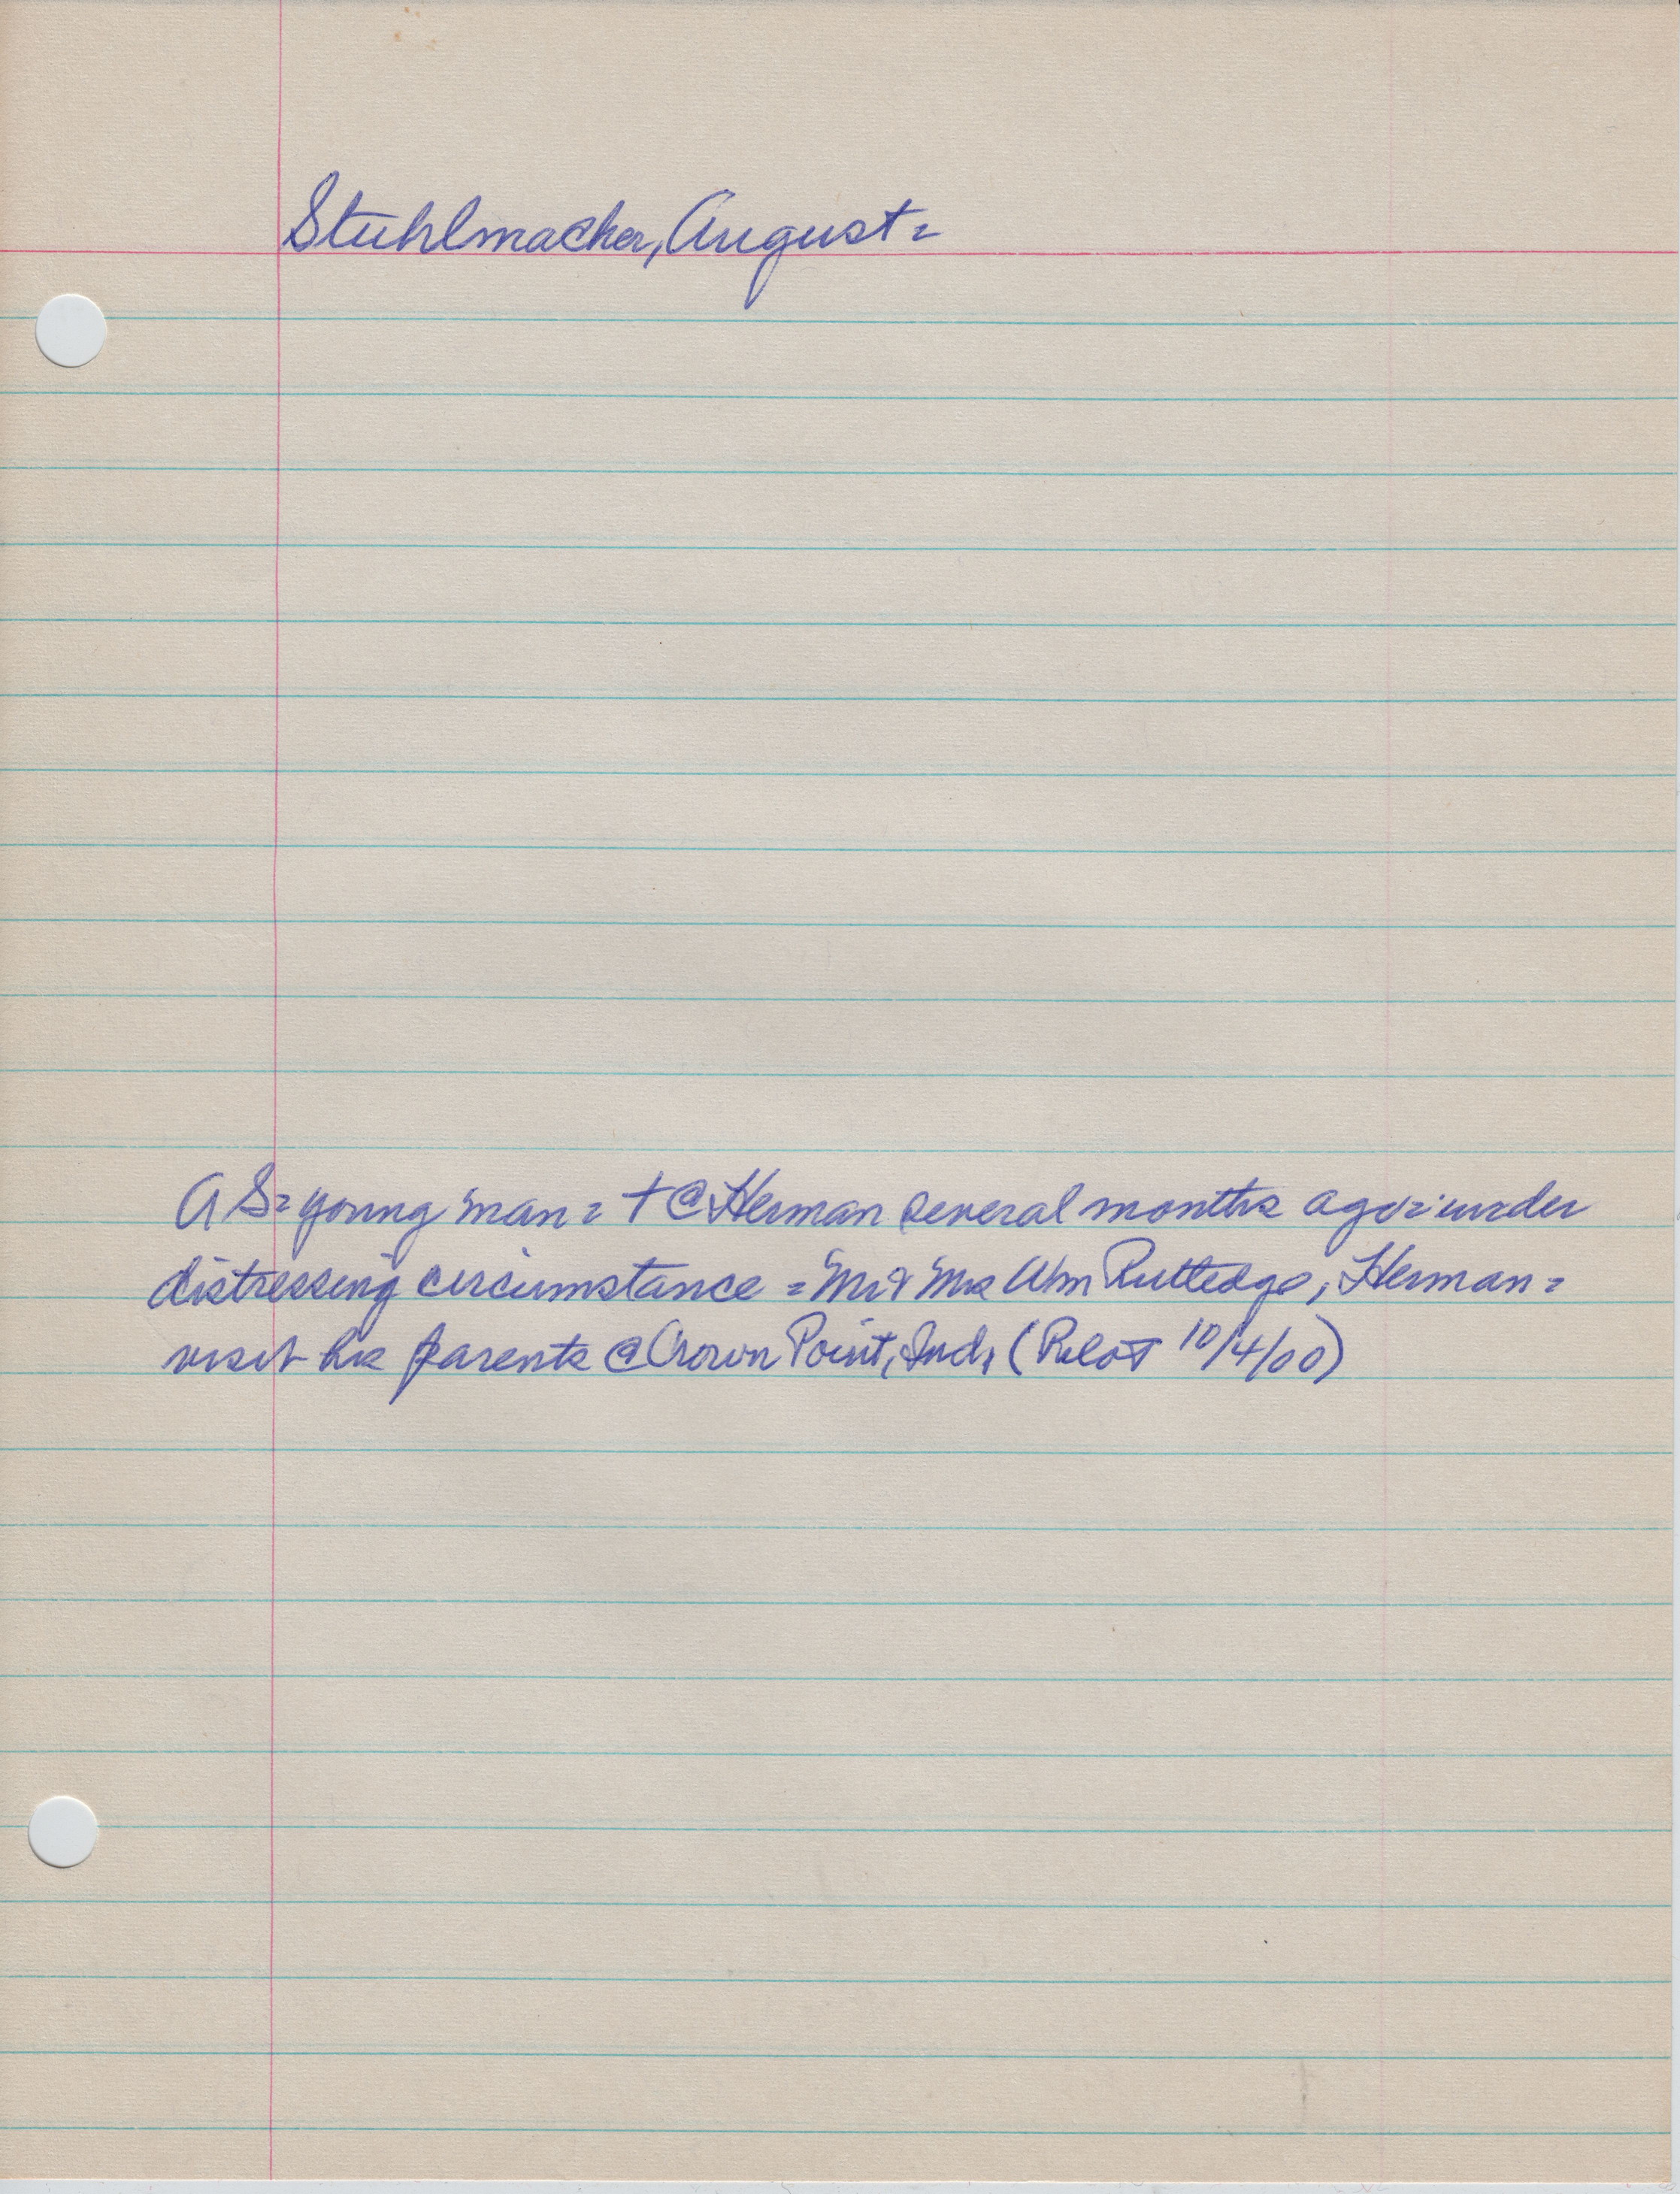 Stuhlmacher, August =
A S = young man = † @ Herman several months ago = under
distressing circumstance = Mr & Mrs Wm Ruttedge, Herman =
visit his parents @ Crown Point, Ind, (Pilot 10/4/00)